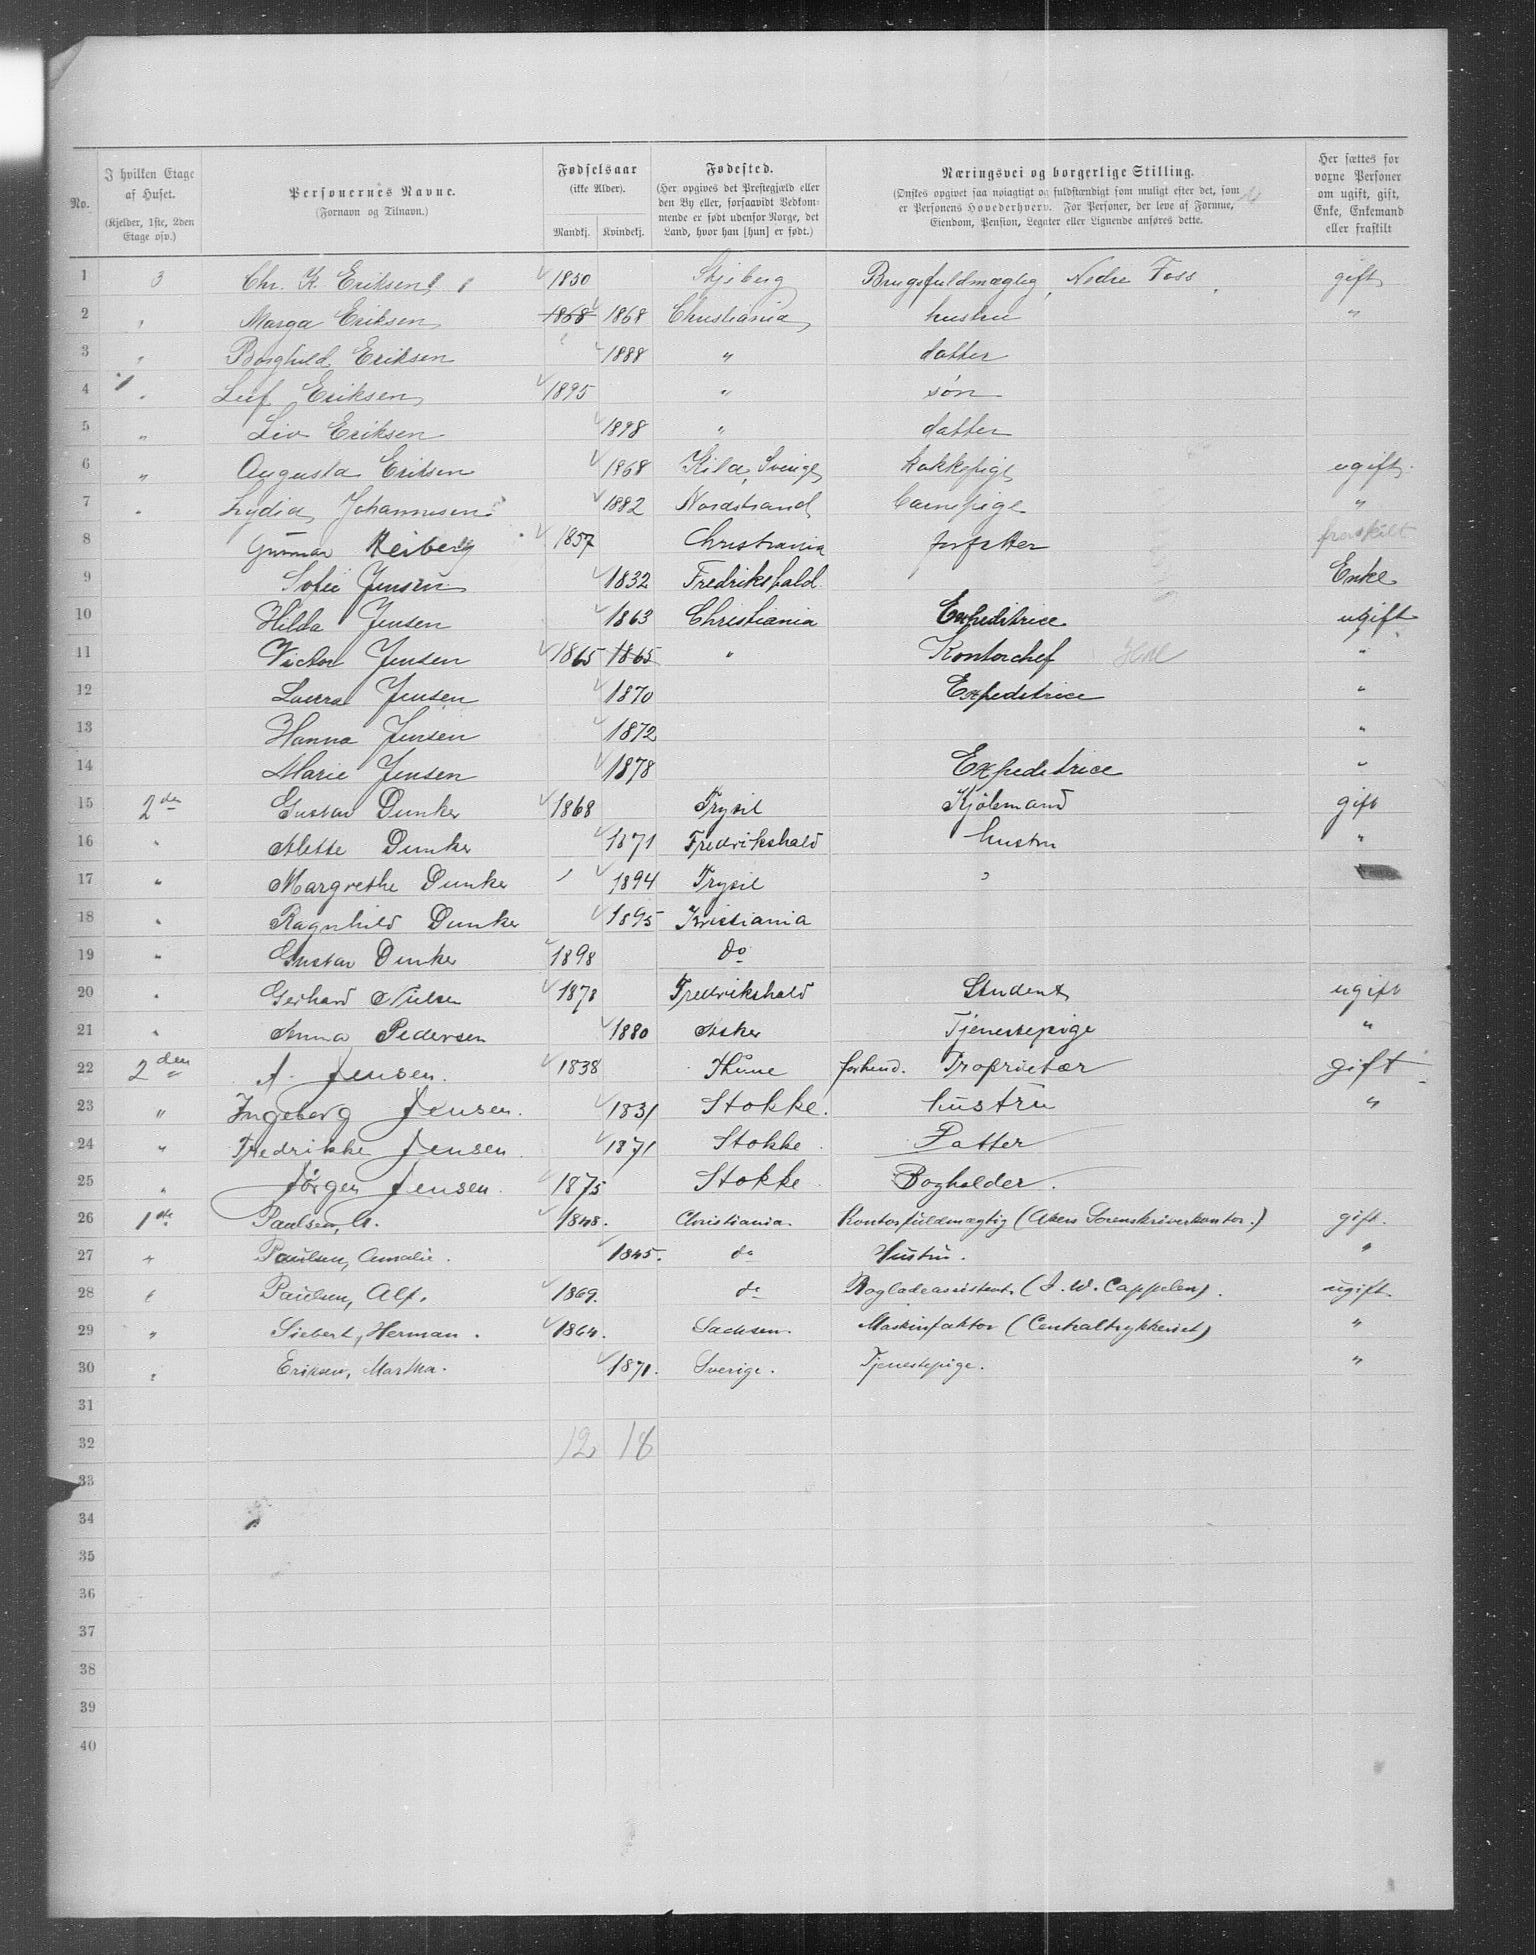 No. | I hvilken Etage af Huset. (Kjelder, 1ste, 2den Etage osv.) | Personernes Navne. (Fornavn og Tilnavn.) | Fødselsaar (ikke Alder). Mandkj. Kvindekj. | Fødested. (Her opgives det Prestegjæld eller den By eller, forsaavidt Vedkommende er født udenfor Norge, det Land, hvor han [hun] er født.) | Næringsvei og borgerlige Stilling. (Ønskes opgivet saa nøiagtigt og fuldstændigt som muligt efter det, som er Personens Hovederhverv. For Personer, der leve af Formue, Eiendom, Pension, Legater eller Lignende anføres dette. | Her sættes for voxne Personer om ugift, gift, Enke, Enkemand eller fraskilt
1 3 Chr. K. Eriksen 1850 Brugsfuldmægtig, Nedre Foss gift
2 " Marga Eriksen 1868 1868 Christiania hustru "
3 " Borghild Eriksen 1888 " datter
4 " Leif Eriksen 1895 " søn
5 " Liv Eriksen 1898 " datter
6 " Augusta Eriksen 1868 Kila, Sverige kokkepige ugift
7 " Lydia Johannesen 1882 Nordstrand barnepige "
8 Gunnar Heiberg 1857 Christiania forfatter fraskilt
9 Sofie Jensen 1832 Fredrikshald Enke
10 Hilda Jensen 1863 Christiania Expeditrice ugift
11 Victor Jensen 1865 1865 " Kontorchef "
12 Laura Jensen 1870 Expeditrice "
13 Hanna Jensen 1872 "
14 Marie Jensen 1878 Expeditrice "
15 2den Gustav Dunker 1868 Trysil Kjølemand gift
16 " Mette Dunker 1871 Fredrikshald hustru "
17 " Margrethe Dunker 1894 Trysil
18 " Ragnhild Dunker 1895 Kristiania
19 " Gustav Dunker 1898 do
20 " Gerhard Nielsen 1878 Fredrikshald Student ugift
21 " Anna Pedersen 1880 Asker Tjenestepige "
22 2den A. Jensen. 1838 forhend. Proprietær gift
23 " Ingeborg Jensen. 1831 Stokke. hustru "
24 " Fredrikke Jensen. 1871 Stokke. Datter
25 " Jørgen Jensen. 1875 Stokke Bogholder.
26 1ste Paulsen, A. 1848. Christiania. Kontorfuldmægtig (Akers Sorenskriverkontor.) gift.
27 " Paulsen, Amalie. 1845. do Hustru. "
28 " Paulsen, Alf. 1869. do Bogladeassistent. (J. W. Cappelen). ugift.
29 " Siebert, Herman. 1864. Sachsen. Maskinfaktor (Centraltrykkeriet) "
30 " Eriksen, Martha. 1871. Sverige. Tjenestepige. "
31
32 12 18
33
34
35
36
37
38
39
40